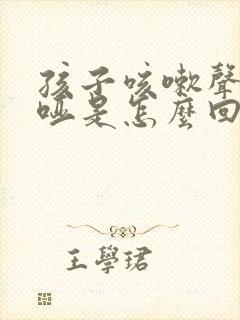 孩子咳嗽聲
啞是怎麼回
王學珺